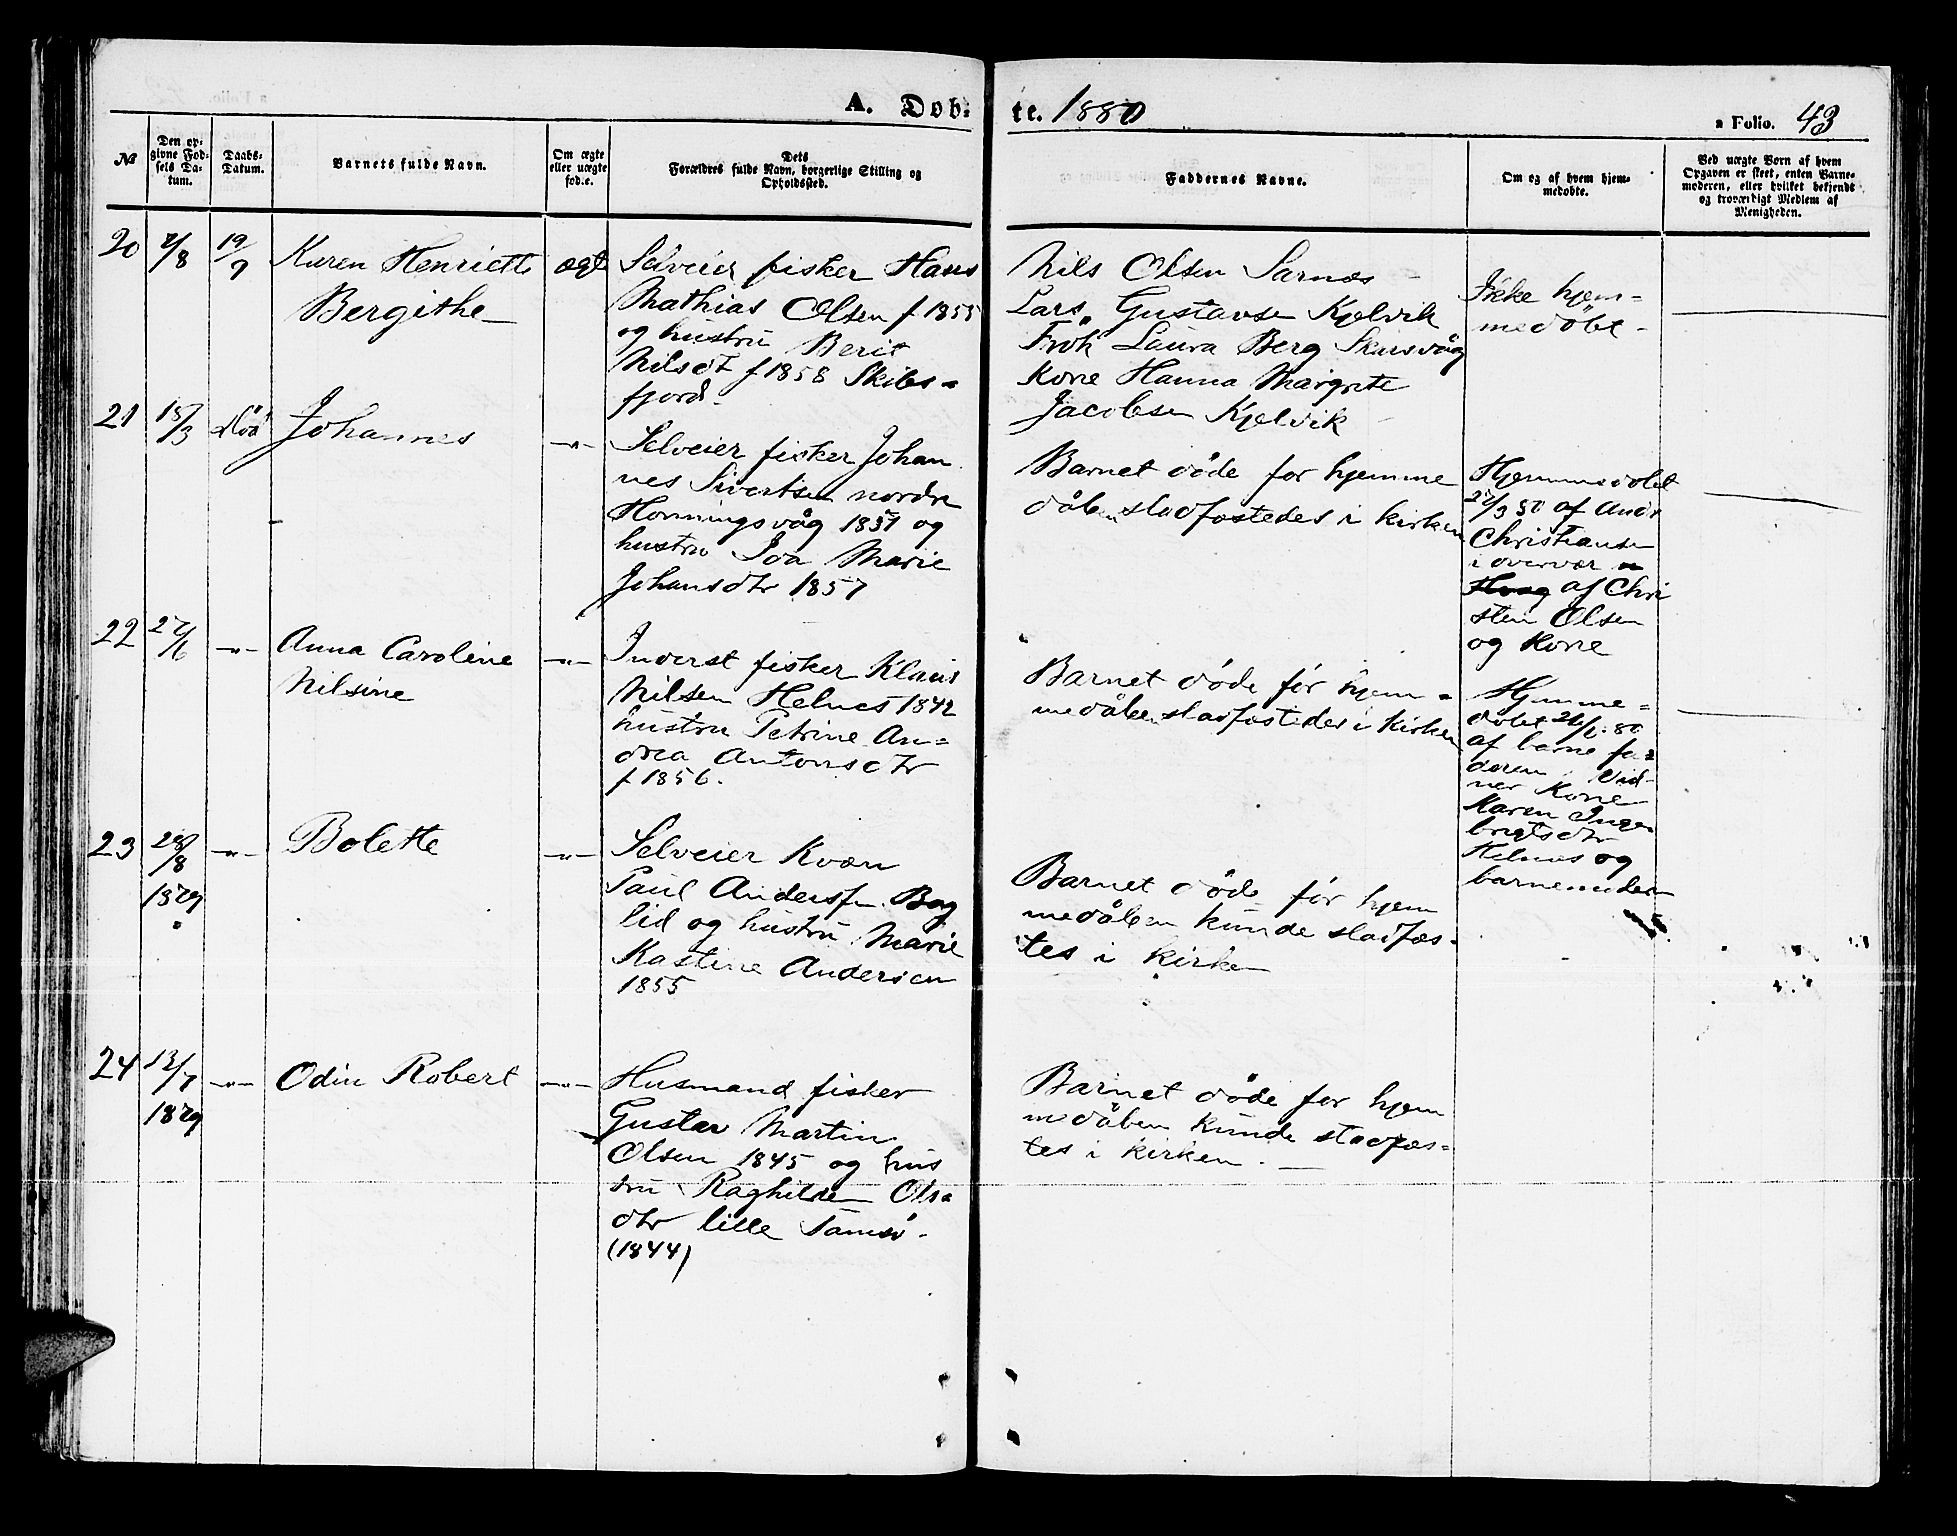 A. Døb-
te. 1880
a Folio. 43
№
Den op-
givne Fød-
sels Da-
tum.
Daabs-
Datum.
Barnets fulde Navn.
Om ægte
eller uægte
fød.e.
Dets
Forældres fulde Navn, borgerlige Stilling og
Opholdssted.
Faddernes Navne.
Om og af hvem hjem-
medøbte.
Ved uægte Børn af hvem
Opgaven er skeet, enten Barne-
moderen, eller hvilket bekjendt
og troværdigt Medlem af
Menigheden.
20
2/8
19/9
Karen Henriette
Bergithe
ægt
Selveier fisker Hans
Mathias Olsen f 1855
og hustru Berit
Nilsdt f 1858 Skibs-
fjord.
Nils Olsen Sarnes
Lars Gustavsen Kjelvik
Frøk Laura Berg Skarsvåg
Kone Hanna Margrete
Jacobsen Kjelvik
Ikke hjem-
medøbt
21
15/3
död
Johannes
-"-
Selveier fisker Johan
nes Sivertsen nordre
Honningsvåg 1851 og
hustru Marie
Johansdtr 1857
Barnet døde for hjemme
dåben stadfæstedes i kirken
Hjemmedøbt
/3 80 af Andr
Christiansen
i overvær
af Chri
sten Olsen
og Kone
22
27/6
-"-
Anna Caroline
Nilsine
-"-
Inderst fisker Klaus
Nilsen Helnes 1842
hustru Petrine An-
drea Antonsdtr
f 1856.
Barnet døde før hjem-
medåben stadfæstedes i kirken
Hjemme-
døbt 80
af barne fa-
deren. Vid-
ner Kone
Karen Inge
brigtsdtr
Helnes og
barnemoderen
23
28/8
1879
-"-
Bolette
-"-
Selveier Kvæn
Paul Andersen
lid og hustru Marie
Kastine Andersen
1855
Barnet døde før hjem
medåben kunde stadfæs-
tes i kirken
24
12/7
1879
-"-
Odin Robert
-"-
Husmand fisker
Gustav Martin
Olsen 1845 og hus
tru Raghilde Ols
dtr lille Tamsø.
(1844)
Barnet døde for hjem
medåben kunde stadfæs-
tes i kirken.